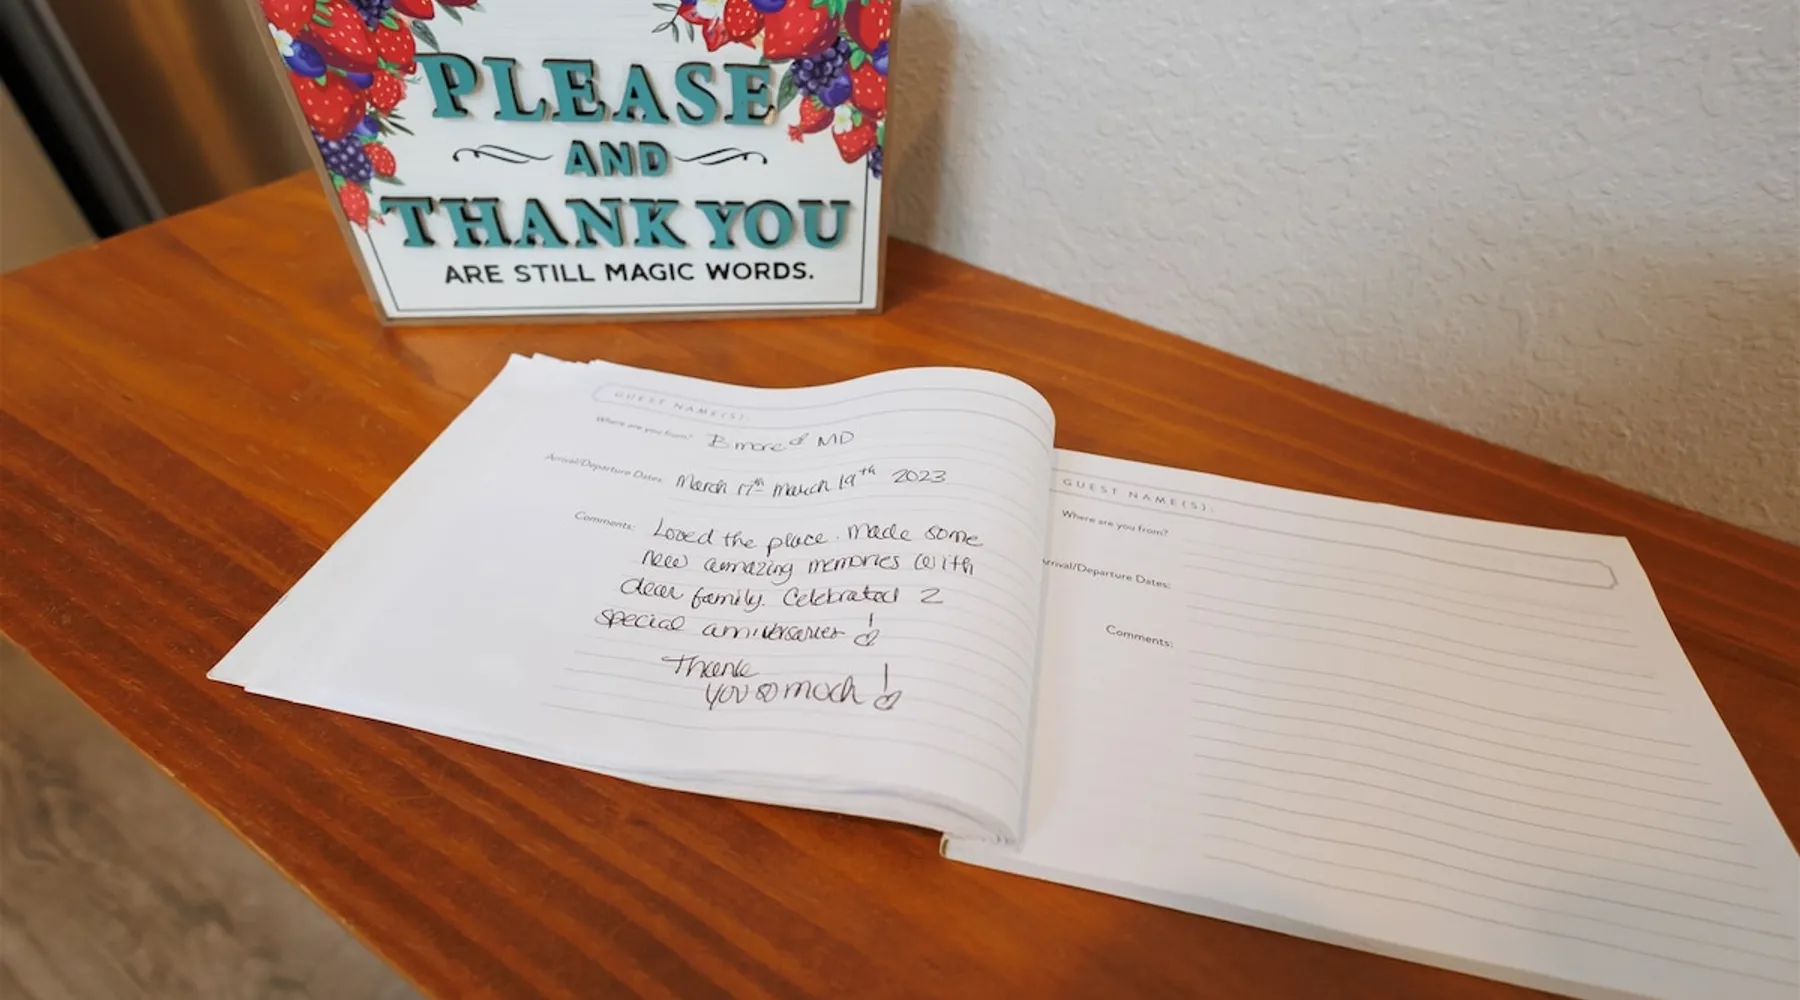 PLEASE
AND
THANK YOU
ARE STILL MAGIC WORDS.
GUEST NAME(S):
Where are you from? Bmore MD
Arrival/Departure Dates: March 17th March 19th 2023
Comments: Loved the place. Made some
new amazing memories with
dear family. Celebrated 2
special anniversaries!
Thank
you so much!
GUEST NAME(S):
Where are you from?
Arrival/Departure Dates:
Comments: